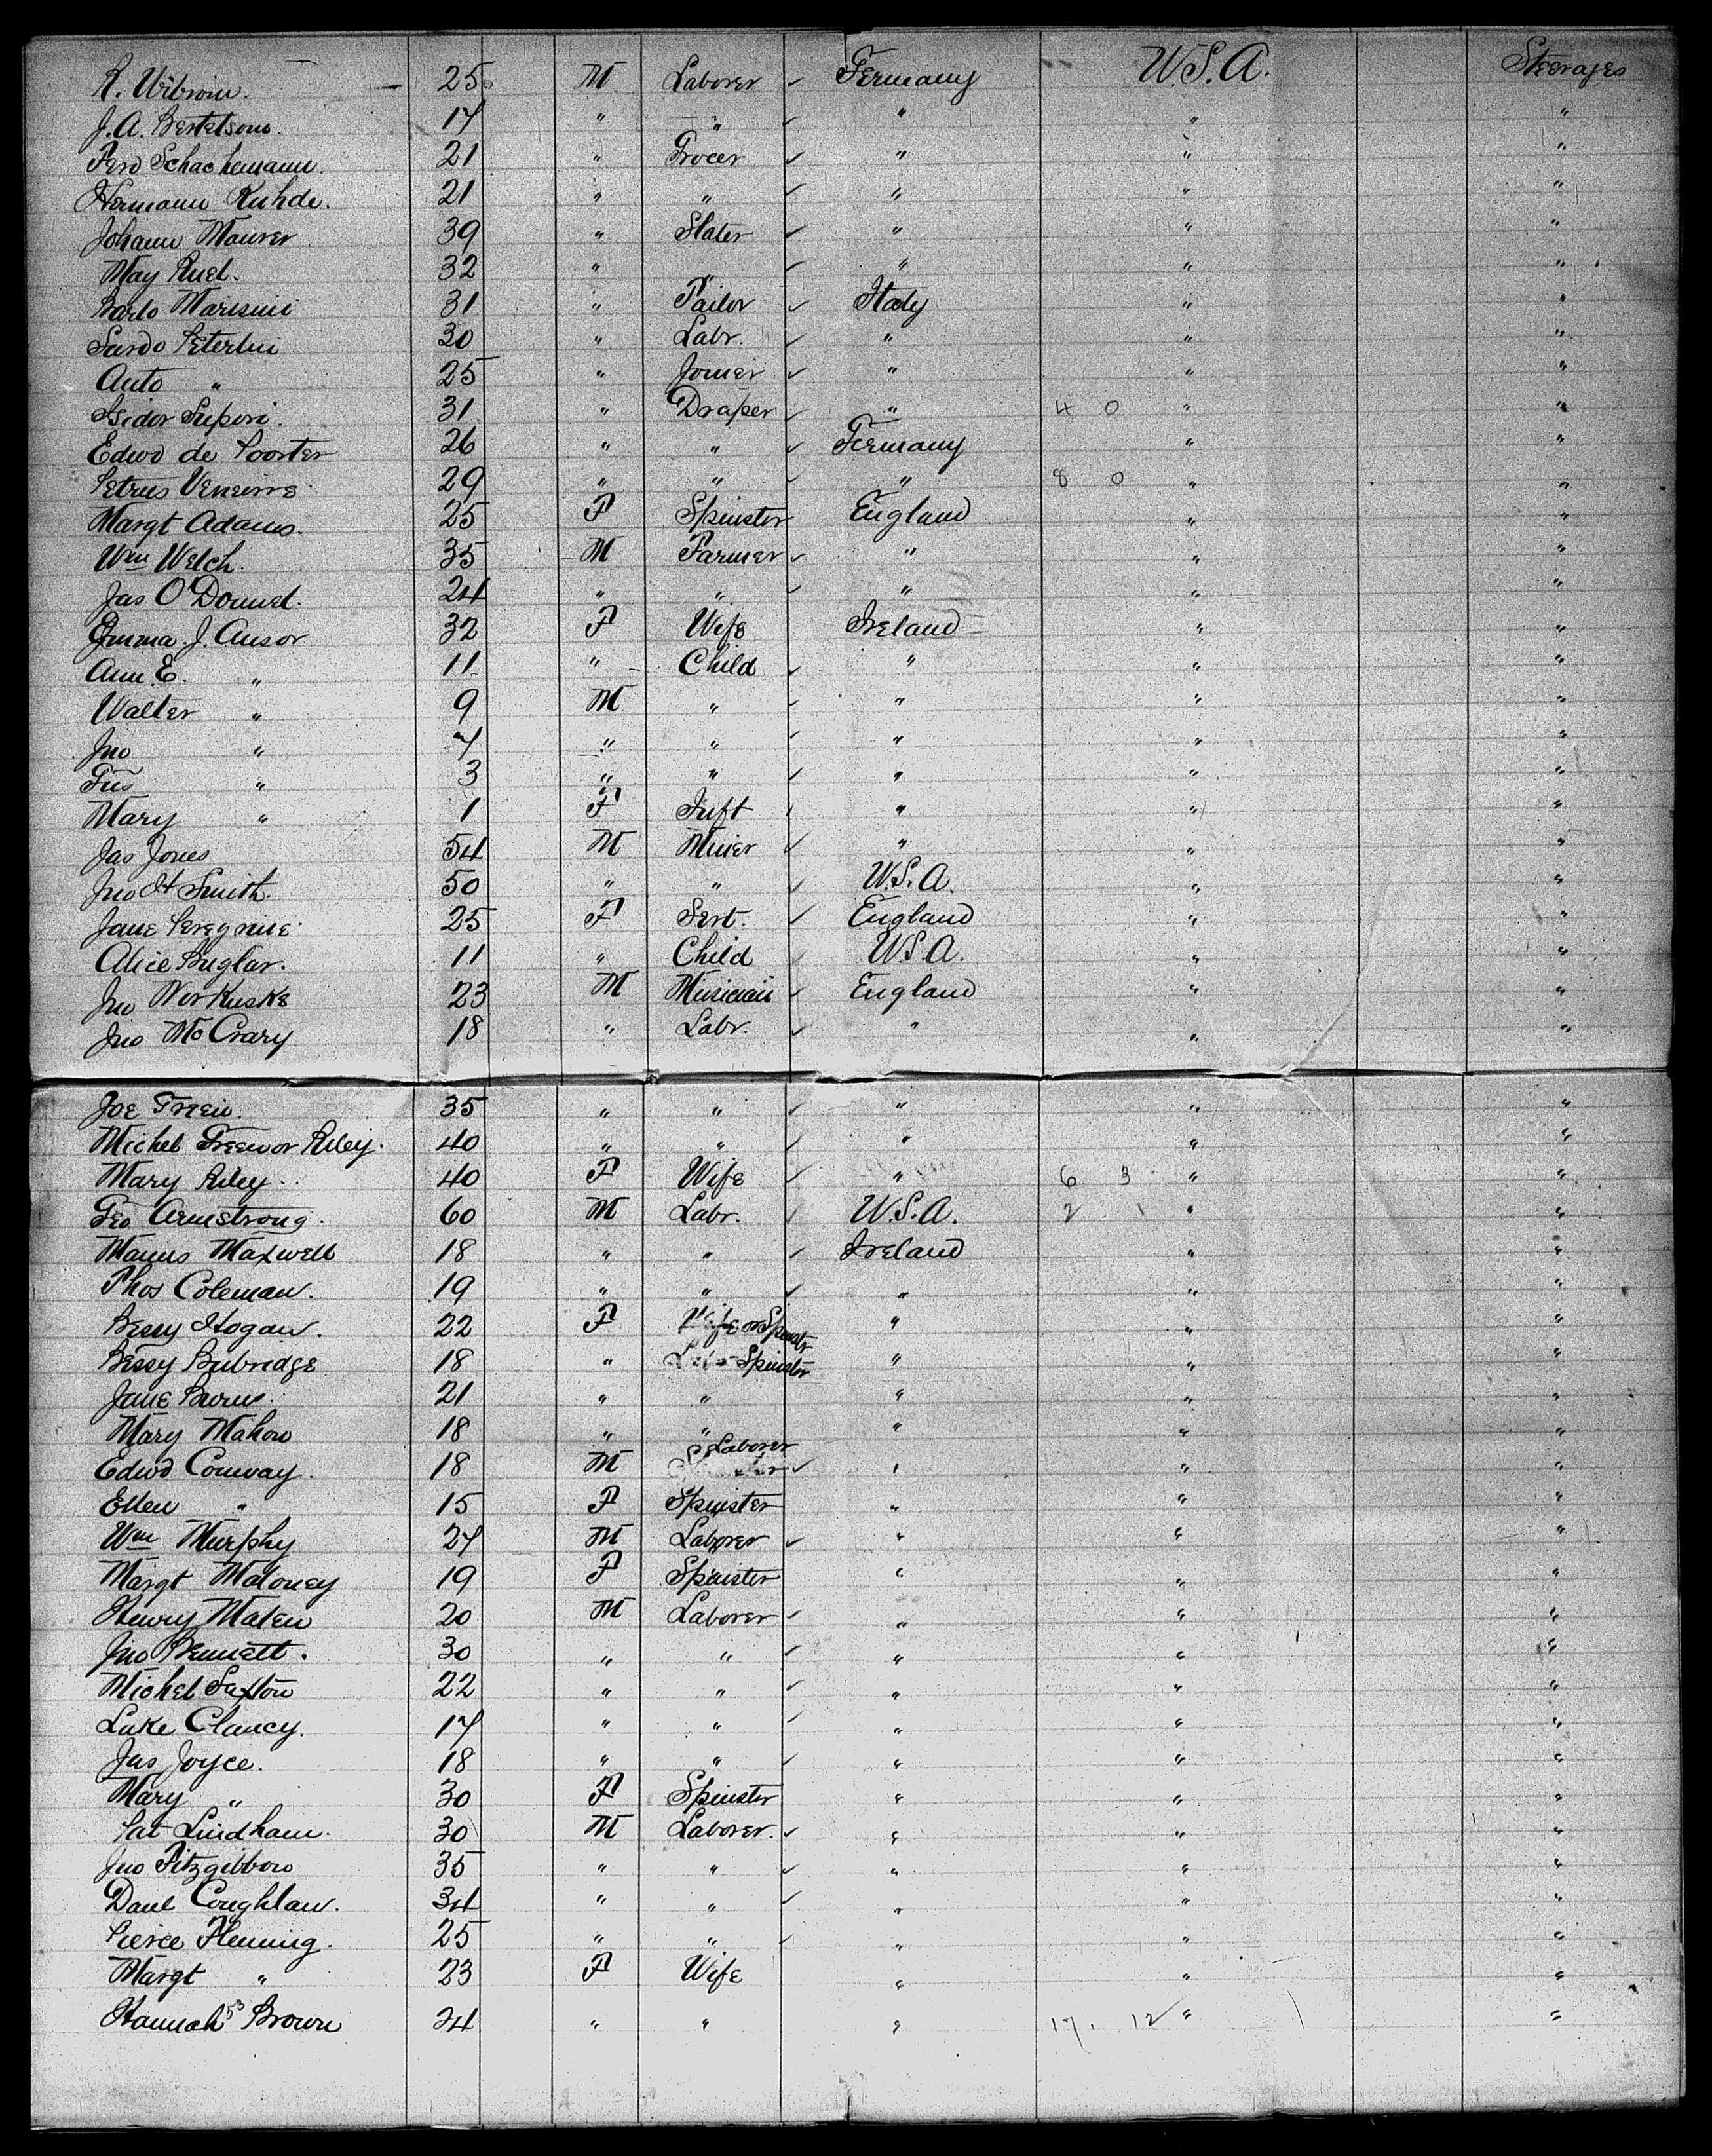 R. Wibroin. — 25 M Laborer ✓ Germany U.S.A. Steerages
J. A. Bertelsons. 17 " " ✓ " " "
Ferd Schachemann. 21 " Grocer ✓ " " "
Hermann Kuhde. 21 " " ✓ " " "
Johann Maurer 39 " Slater ✓ " " "
May Ruel. 32 " " ✓ " " "
Carlo Marisini 31 " Tailor ✓ Italy " "
Sardo Peterlin 30 " Labr. ✓ " " "
Anto " 25 " Joiner ✓ " " "
Isidor Supori. 31 " Draper ✓ " 4 0 " "
Edwd de Poorter 26 " " ✓ Germany " "
Petrus 29 " " ✓ " 8 0 " "
Margt Adams. 25 F Spinster England " "
Wm Welch. 35 M Farmer ✓ " " "
Jas O'Donnel. 24 " " ✓ " " "
Emma. J. Ansor 32 F Wife Ireland " "
Ann. E. " 11 " Child ✓ " " "
Walter " 9 M " ✓ " " "
Jno " 7 " " ✓ " " "
" 3 " " ✓ " " "
Mary " 1 F Inft " " "
Jas Jones 54 M Miner ✓ " " "
Jno H Smith. 50 " " ✓ U.S.A. " "
Jane Peregrine 25 F Sert. ✓ England " "
Alice Buglar. 11 " Child ✓ U.S.A. " "
Jno Workuske 23 M Musician ✓ England " "
Jno McCrary 18 " Labr. ✓ " " "
Joe Green. 35 " " ✓ " " "
Michel Green or Riley. 40 " " ✓ " " "
Mary Riley.. 40 F Wife ✓ " 6 3 " "
Geo Armstrong. 60 M Labr. ✓ U.S.A. 2 1 " "
Manus Maxwell 18 " " ✓ Ireland " "
Thos Coleman. 19 " " ✓ " " "
Bessy Hogan. 22 F Wife or Spinstr " " "
Bessy Bubridge 18 " Spinster " " "
Jane Burns. 21 " " " " "
Mary Mahon 18 " " " " "
Edwd Conway. 18 M Laborer ✓ " " "
Ellen " 15 F Spinster " " "
Wm Murphy 27 M Laborer ✓ " " "
Margt Maloney 19 F Spinster " " "
Henry Malen 20 M Laborer ✓ " " "
Jno Bennett. 30 " " ✓ " " "
Michel Saxton 22 " " ✓ " " "
Luke Clancy. 17 " " ✓ " " "
Jas Joyce. 18 " " ✓ " " "
Mary " 30 F Spinster " " "
Pat Lindham. 30 M Laborer. ✓ " " "
Jno Fitzgibbon 35 " " ✓ " " "
Danl Coughlan. 34 " " ✓ " " "
Pierce Fleming. 25 " " ✓ " " "
Margt " 23 F Wife " " "
Hannah 53 Brown 24 " " " 17. 12 " "